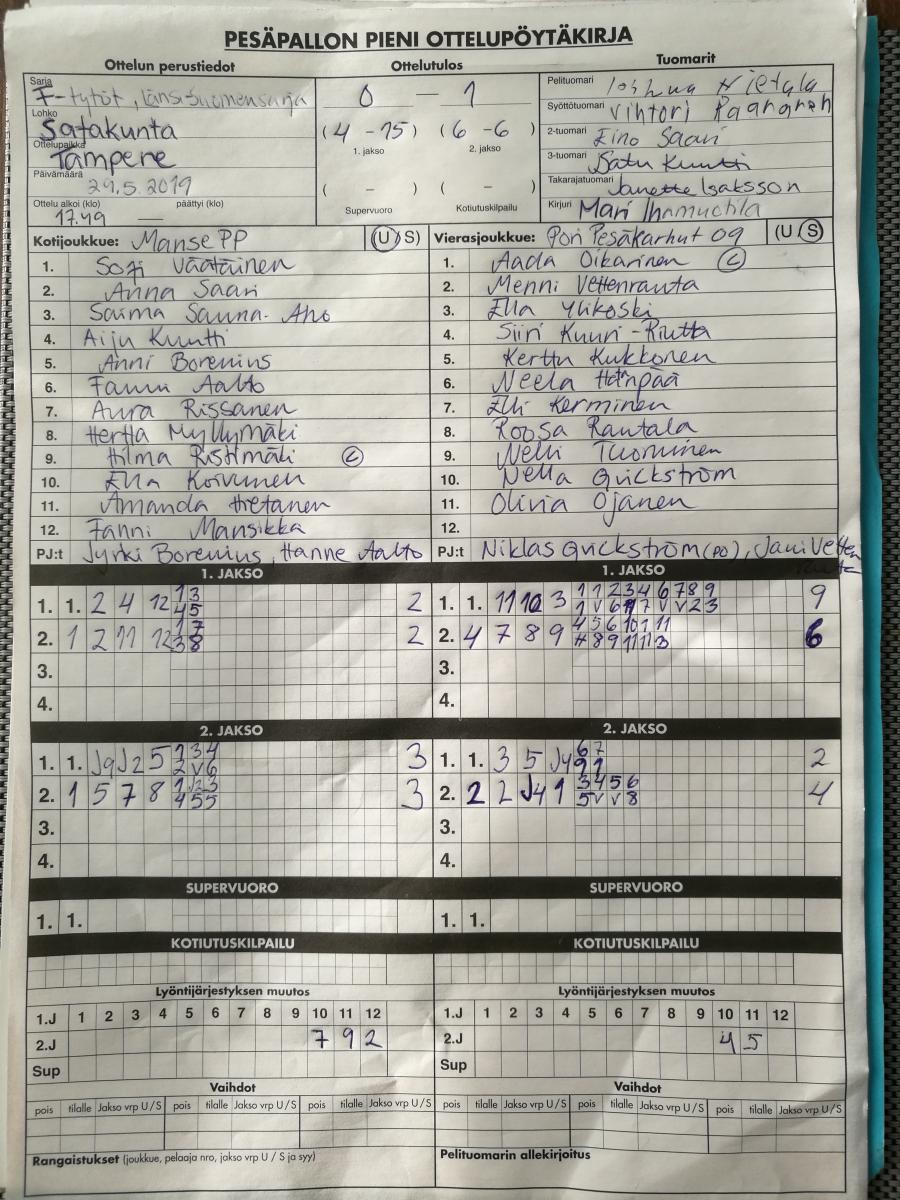 PESÄPALLON PIENI OTTELUPÖYTÄKIRJA
Ottelun perustiedot Ottelutulos Tuomarit
Sarja F-tytöt, länsisuomensarja
Lohko Satakunta
Ottelupaikka Tampere
Päivämäärä 29.5.2019
Ottelu alkoi (klo) 17.49 — päättyi (klo)
0 – 1
(4 - 15) (6 - 6)
1. jakso 2. jakso
( - ) ( - )
Supervuoro Kotiutuskilpailu
Pelituomari Joshua Hietala
Syöttötuomari Vihtori Paananen
2-tuomari Eino Saari
3-tuomari Satu Kuutti
Takarajatuomari Janette Isaksson
Kirjuri Mari
Kotijoukkue: Manse PP (U/S) Vierasjoukkue: Pori Pesäkarhut 09 (U/S)
1. Sofi Väätäinen 1. Aada Oikarinen C
2. Anna Saari 2. Menni Vettenranta
3. Saima Sauna-Aho 3. Ella Ylikoski
4. Aiju Kuutti 4. Siiri Kuuri-Riutta
5. Anni Borenius 5. Kerttu Kukkonen
6. Fanni Aalto 6. Neela
7. Aura Rissanen 7. Elli Kerminen
8. Hertta Myllymäki 8. Roosa Rautala
9. Hilma Ristimäki C 9. Nelli Tuominen
10. Ella Koivunen 10. Nella Quickström
11. Amanda Hietanen 11. Olivia Ojanen
12. Fanni Mansikka 12.
PJ:t Jyrki Borenius, Hanne Aalto PJ:t Niklas Quickström (PO), Jani Vettenranta
1. JAKSO 1. JAKSO
1. 1. 2 4 12 1 3 2 1. 1. 11 10 3 1 1 2 3 4 6 7 8 9 9
4 5 1 V 6 7 V V 2 3
2. 1 2 11 12 1 7 2 2. 4 7 8 9 4 5 6 10 1 11 6
3 8 8 9 11 11 3
3. 3.
4. 4.
2. JAKSO 2. JAKSO
1. 1. J9 J2 5 2 3 4 3 1. 1. 3 5 J4 6 7 2
2 V 6 9 1
2. 1 5 7 8 1 J2 3 3 2. 2 2 J4 1 3 4 5 6 4
4 5 5 5 V V 8
3. 3.
4. 4.
SUPERVUORO SUPERVUORO
1. 1. 1. 1.
KOTIUTUSKILPAILU KOTIUTUSKILPAILU
Lyöntijärjestyksen muutos Lyöntijärjestyksen muutos
1.J 1 2 3 4 5 6 7 8 9 10 11 12 1.J 1 2 3 4 5 6 7 8 9 10 11 12
2.J 7 9 2 2.J 4 5
Sup Sup
Vaihdot Vaihdot
pois tilalle Jakso vrp U/S pois tilalle Jakso vrp U/S pois tilalle Jakso vrp U/S pois tilalle Jakso vrp U/S pois tilalle Jakso vrp U/S pois tilalle Jakso vrp U/S
Rangaistukset (joukkue, pelaaja nro, jakso vrp U / S ja syy) Pelituomarin allekirjoitus